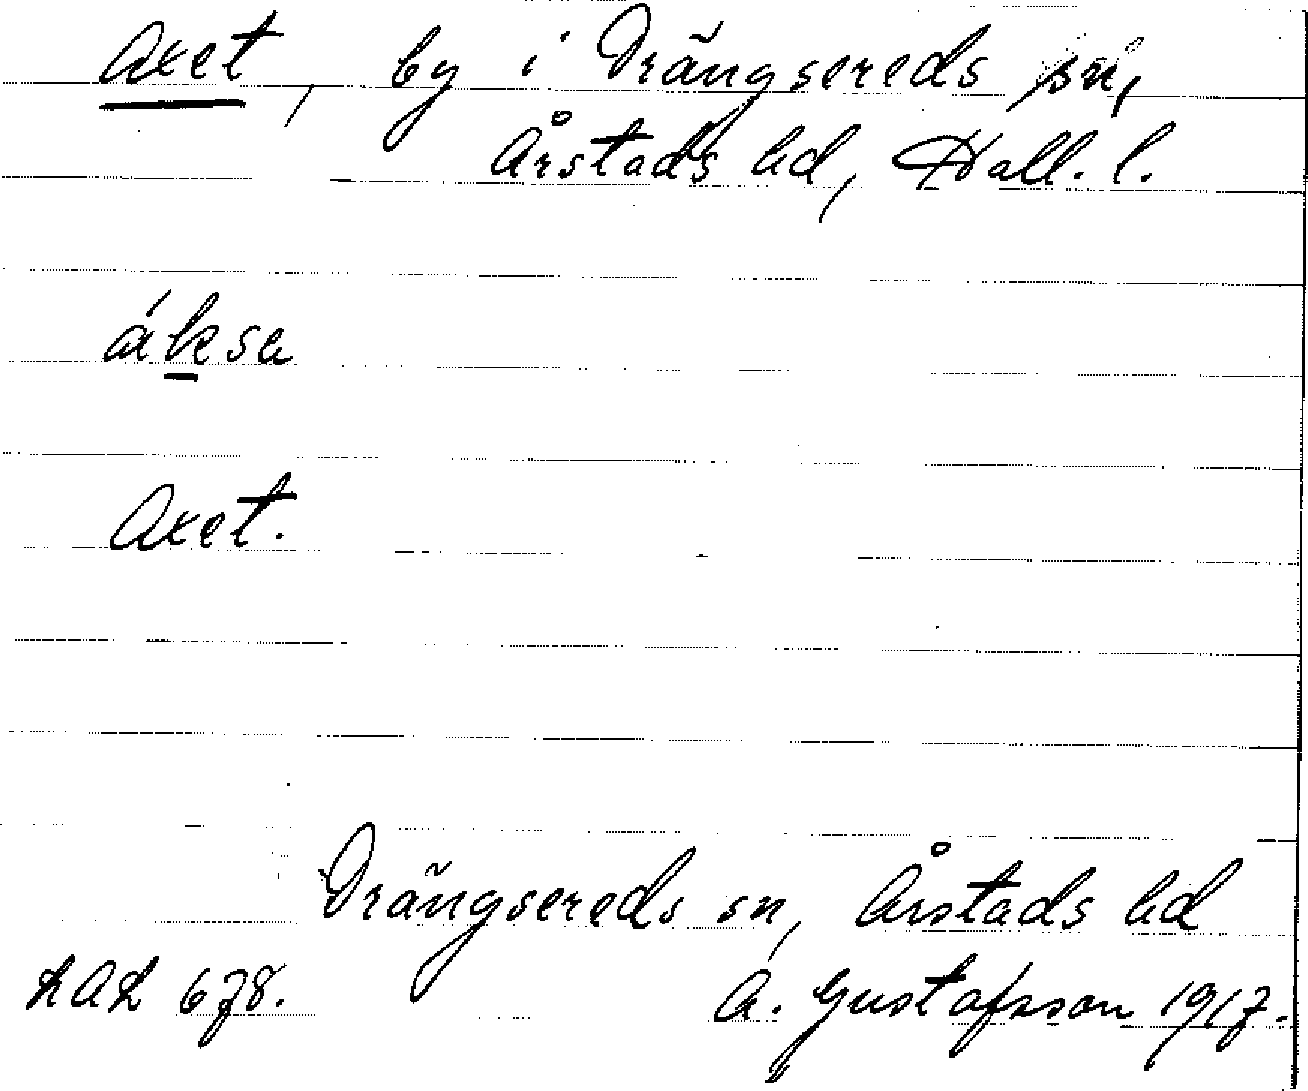 Axet, by i Drängsereds sn,
Årstads hd, Hall. l.
áksa
Axet.
Drängsereds sn, Årstads hd
LAL 678.
A. Gustafsson 1917.